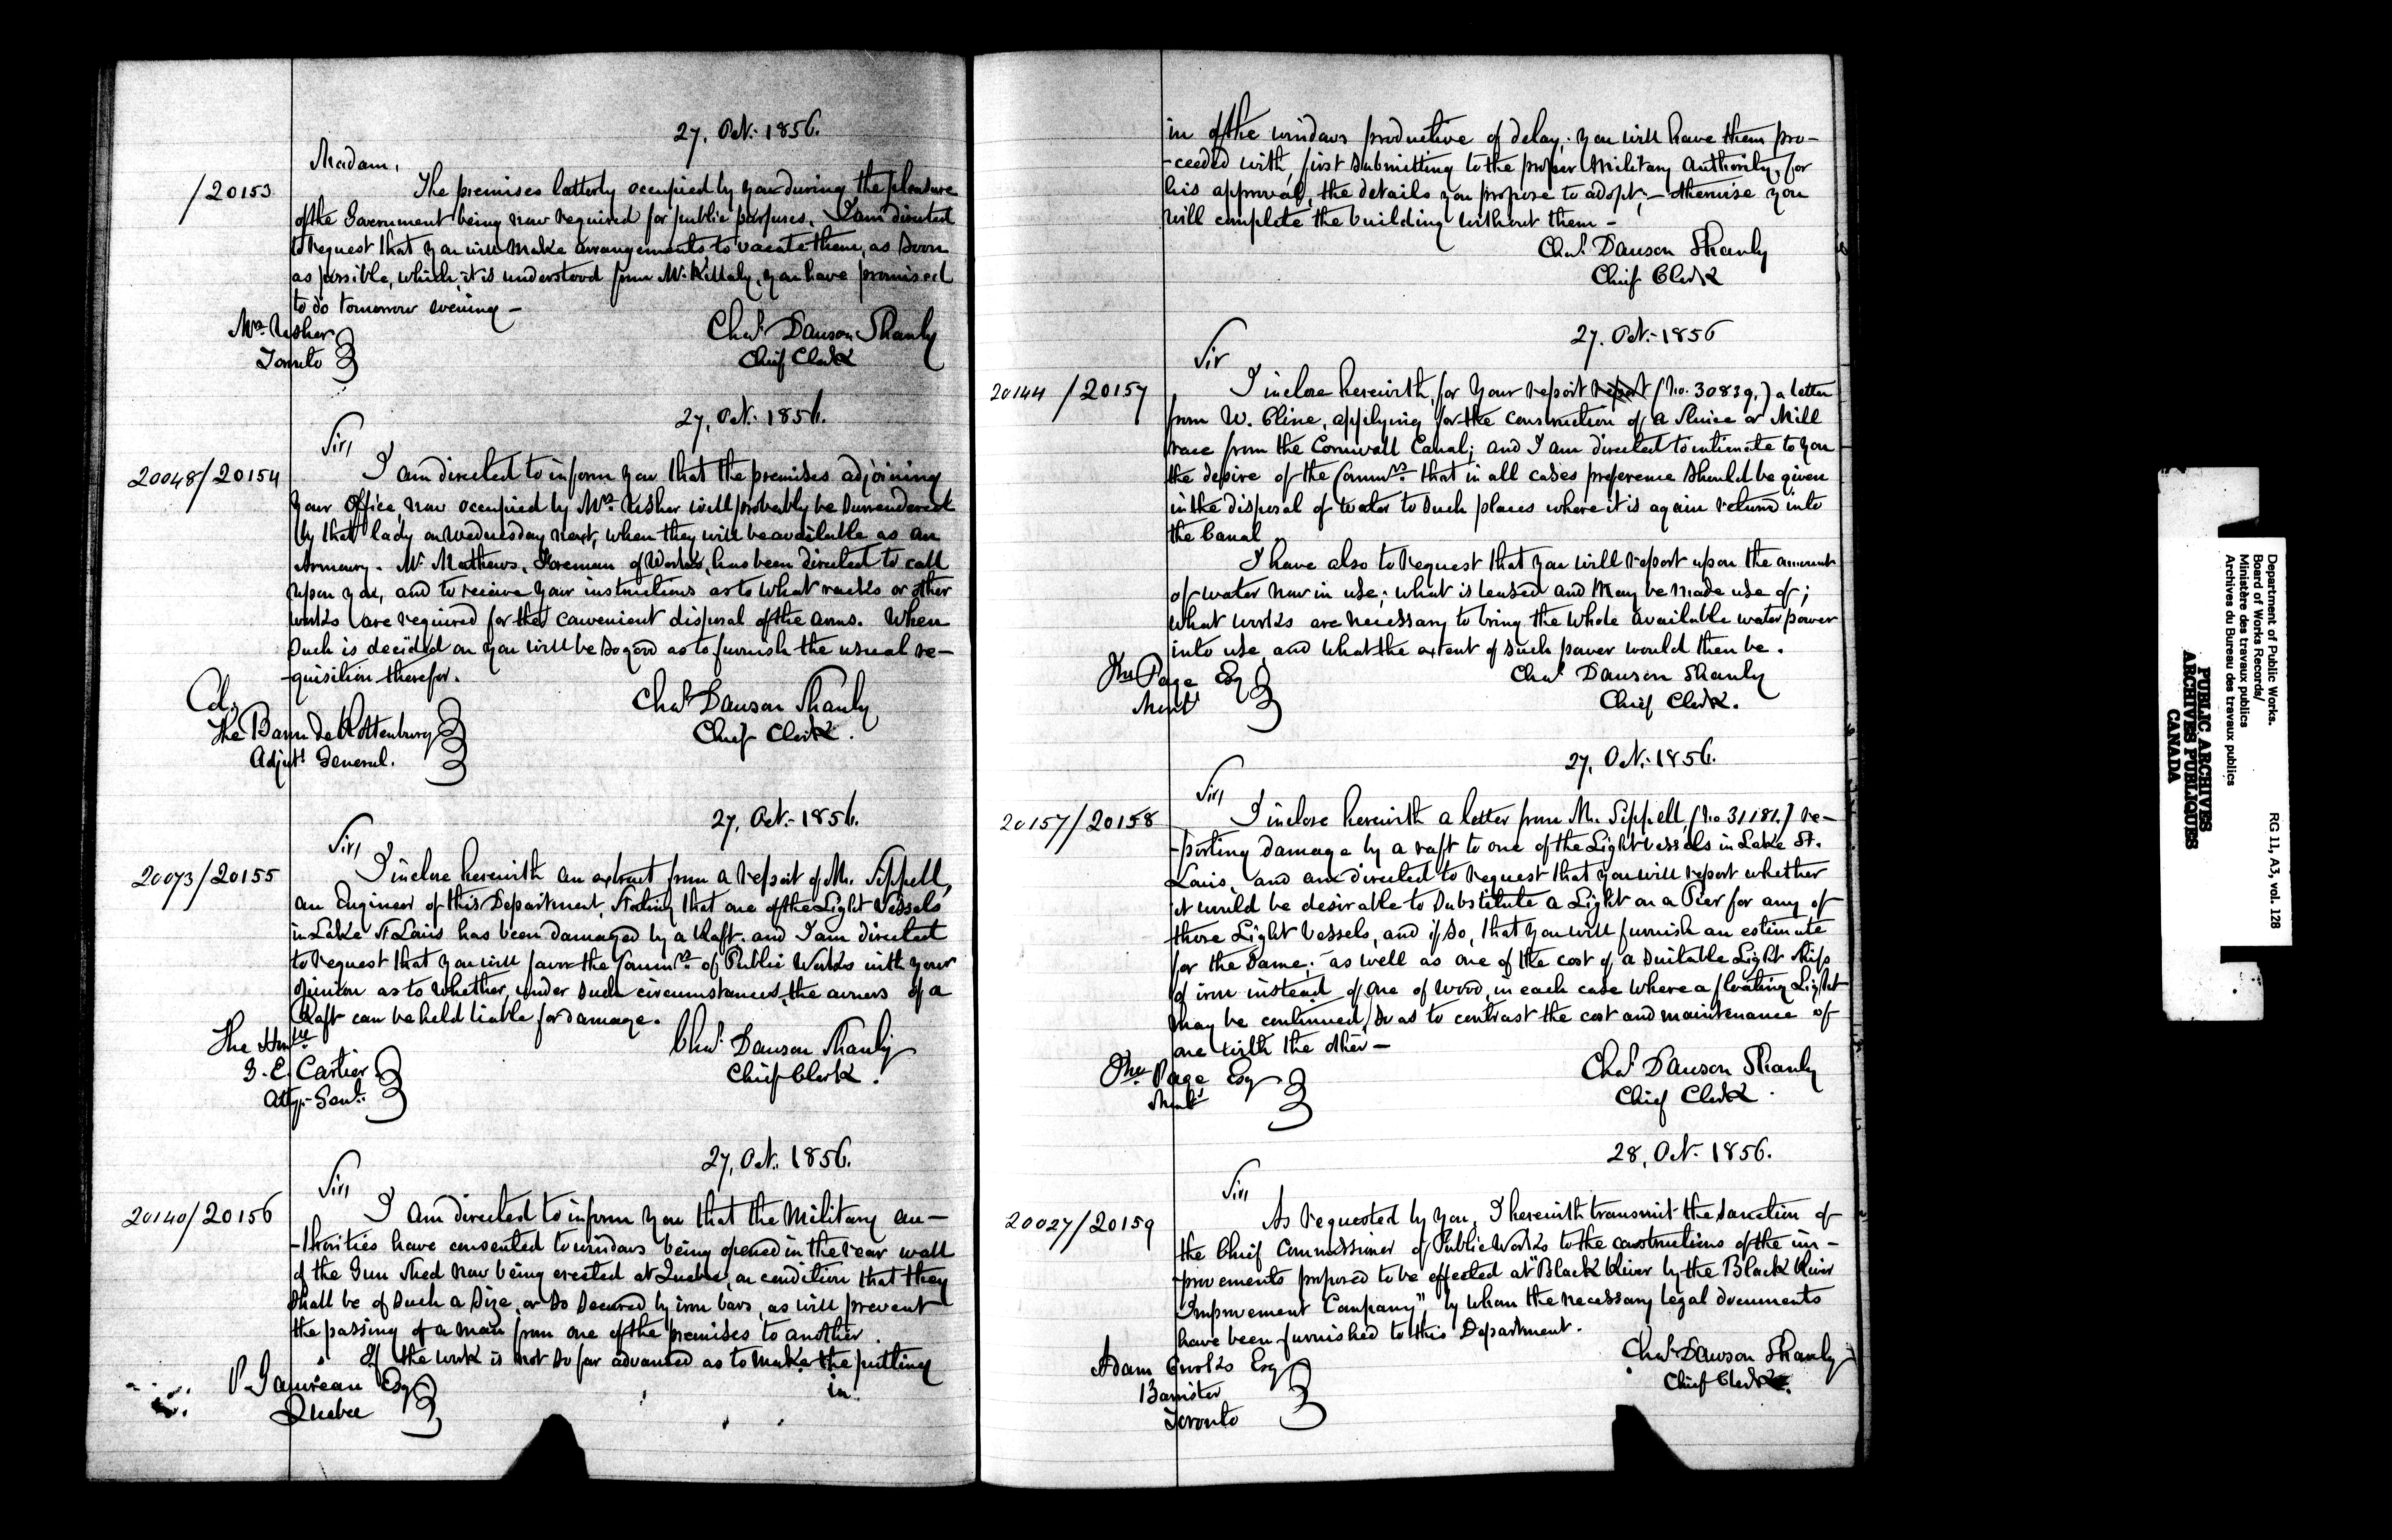 27, Oct. 1856.
Madam,
/20153
The premises latterly occupied by you during the pleasure
of the Government being now required for public purposes, I am directed
to request that you will make arrangements to vacate them, as soon
as possible, which, it is understood from Mr. Killaly, you have promised
to do tomorrow evening —
Mrs. Usher
Toronto
Chas. Dawson Shanly
Chief Clerk
27, Oct. 1856.
Sir,
20048/20154
I am directed to inform you that the premises adjoining
your Office now occupied by Mrs. Usher will probably be surrendered
by that lady on Wednesday next, when they will be available as an
Armoury. Mr. Mathews, Foreman of Works, has been directed to call
upon you, and to receive your instructions as to what racks or other
works are required for the convenient disposal of the arms. When
such is decided on you will be so good as to furnish the usual re-
-quisition therefor.
Col.
The Baron de Rottenburg
Adjut. General.
Chas. Dawson Shanly
Chief Clerk.
27, Oct. 1856.
Sir,
20073/20155
I inclose herewith an extract from a report of Mr. Sippell,
an Engineer of this Department, stating that one of the Light Vessels
in Lake St Louis has been damaged by a Raft, and I am directed
to request that you will favor the Commrs. of Public Works with your
opinion as to whether, under such circumstances, the owners of a
Raft can be held liable for damage.
The Honble
G. E. Cartier
Atty. Genl.
Chas. Dawson Shanly
Chief Clerk.
27, Oct. 1856.
Sir,
20140/20156
I am directed to inform you that the Military au-
-thorities have consented to windows being opened in the rear wall
of the Gun Shed now being erected at Quebec, on condition that they
shall be of such a size, or so secured by iron bars, as will prevent
the passing of a man from one of the premises to another.
If the work is not so far advanced as to make the putting
in
P. Gauvreau Esq
Quebec
in of the windows productive of delay, you will have them pro-
-ceeded with, first submitting to the proper Military Authority, for
his approval, the details you propose to adopt; — otherwise you
will complete the building without them —
Chas. Dawson Shanly
Chief Clerk
27. Oct. 1856
Sir
20144/20157
I inclose herewith, for your report report (No. 30839,) a letter
from W. Cline, applying for the construction of a Sluice or Mill
race from the Cornwall Canal; and I am directed to intimate to you
the desire of the Commrs. that in all cases preference should be given
in the disposal of water to such places where it is again return into
the Canal.
I have also to request that you will report upon the amount
of water now in use; what is leased and may be made use of;
what works are necessary to bring the whole available water power
into use and what the extent of such power would then be.
Jno. Page Esq
Montl
Chas. Dawson Shanly
Chief Clerk.
27, Oct. 1856.
Sir,
20157/20158
I inclose herewith a letter from Mr. Sippell, (No 31181,) re-
-porting damage by a raft to one of the Light vessels in Lake St.
Louis, and am directed to request that you will report whether
it would be desirable to substitute a Light on a Pier for any of
those Light Vessels, and if so, that you will furnish an estimate
for the same; as well as one of the cost of a suitable Light Ship
of iron instead of one of wood, in each case where a floating Light
may be continued, so as to contrast the cost and maintenance of
one with the other —
Jno. Page Esq
Montl
Chas. Dawson Shanly
Chief Clerk.
28, Oct. 1856.
Sir,
20027/20159
As requested by you, I herewith transmit the sanction of
the Chief Commissioner of Public Works to the constructions of the im-
-provements proposed to be effected at "Black River by the Black River
Improvement Company", by whom the necessary legal documents
have been furnished to this Department.
Adam Crooks Esq
Barrister
Toronto
Chas. Dawson Shanly
Chief Clerk.
Department of Public Works.
Board of Works Records/
Ministère des travaux publics
Archives du Bureau des travaux publics
RG 11, A3, vol. 128
PUBLIC ARCHIVES
ARCHIVES PUBLIQUES
CANADA